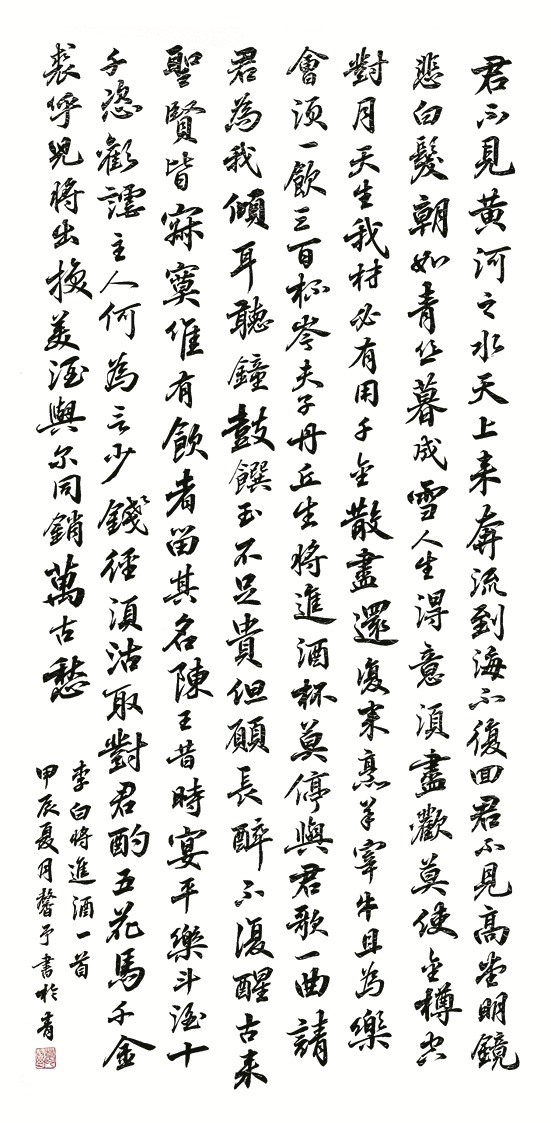 君不見黃河之水天上来奔流到海不復回君不見高堂明鏡
悲白髮朝如青丝暮成雪人生得意須盡歡莫使金樽空
對月天生我材必有用千金散盡還復来烹羊宰牛且為樂
會須一飲三百杯岑夫子丹丘生將進酒杯莫停與君歌一曲請
君為我傾耳聽鐘鼓饌玉不足貴但願長醉不復醒古来
聖賢皆寂寞惟有飲者留其名陳王昔時宴平樂斗酒十
千恣歡謔主人何為言少錢徑須沽取對君酌五花馬千金
裘呼兒將出換美酒與尔同銷萬古愁
李白將進酒一首
甲辰夏月馨予書於青